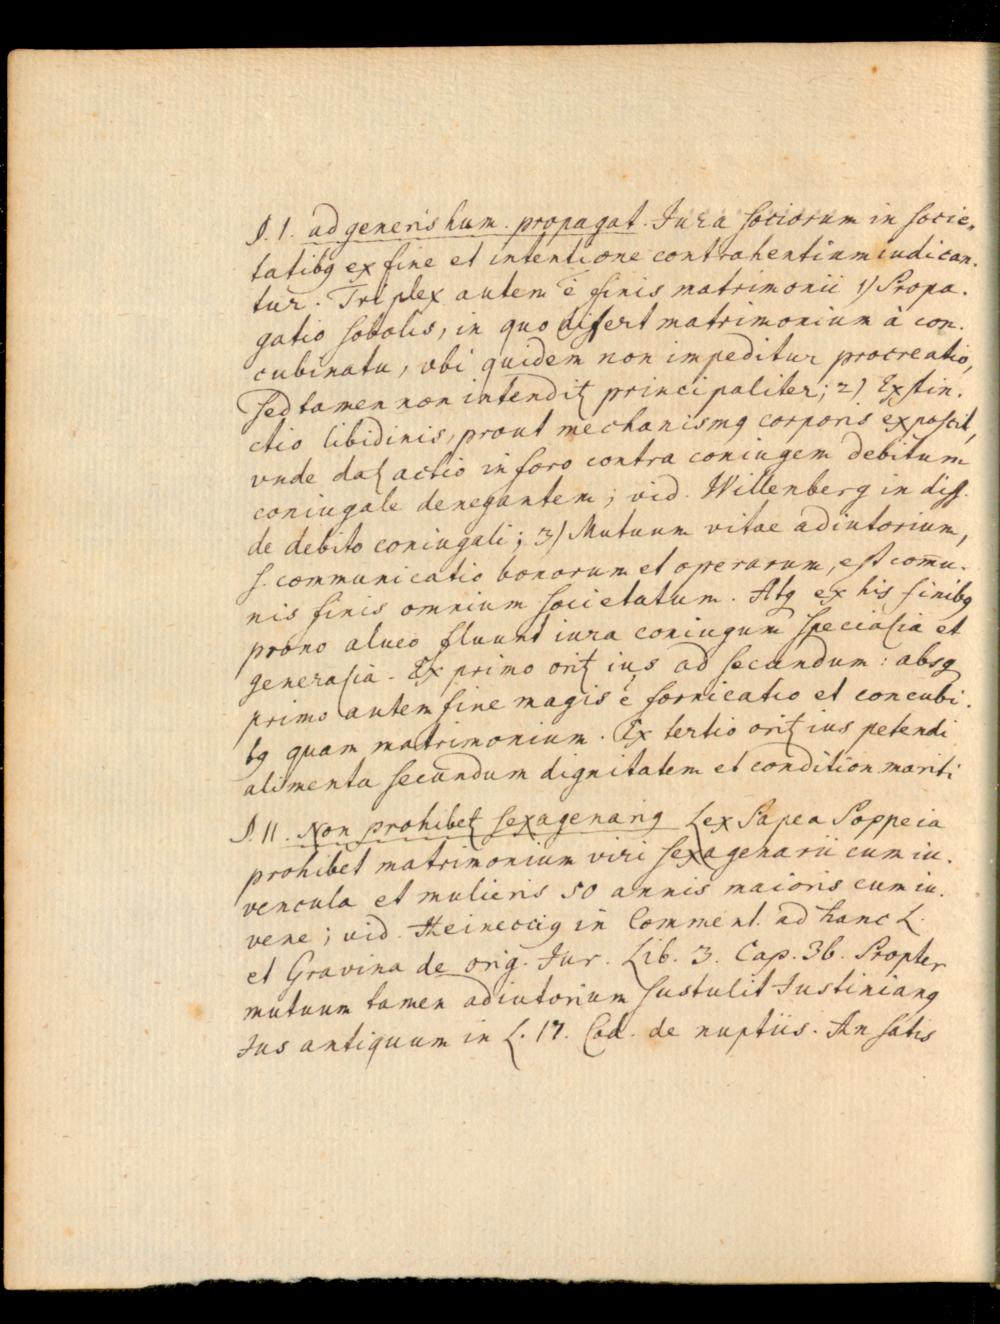 §. I. ad generis hum. propagat. Jura sociorum in socie-
tatibq ex fine et intentione contrahentium iudican-
tur. Triplex autem ē finis matrimonii 1) Propa-
gatio sobolis, in quo differt matrimonium à con-
cubinatu, vbi quidem non impeditur procreatio,
sed tamen non intenditʒ principaliter; 2) Exstin-
ctio libidinis, prout mechanismq corporis exposcit,
vnde datʒ actio in foro contra coniugem debitum
coniugale denegantem; vid. Willenberg in diss.
de debito coniugali; 3) Mutuum vitae adiutorium,
s. communicatio bonorum et operarum, est com̄u-
nis finis omnium societatum. Atq ex his finibq
prono alueo fluunt iura coniugum specialia et
generalia. Ex primo oritʒ ius ad secundum: absq
primo autem fine magis ē fornicatio et concubi-
tq quam matrimonium. Ex tertio oritʒ ius petendi
alimenta secundum dignitatem et condition mariti
§. II. Non prohibetʒ sexagenariq Lex Papea Poppeia
prohibet matrimonium viri sexagenarii cum iu-
vencula et mulieris 50 annis maioris cum iu-
vene; vid. Heinecciq in Comment. ad hanc L.
et Gravina de orig. Jur. Lib. 3. Cap. 36. Propter
mutuum tamen adiutorium sustulit Justinianq
Jus antiquum in L. 27. Cod. de nuptiis. An satis